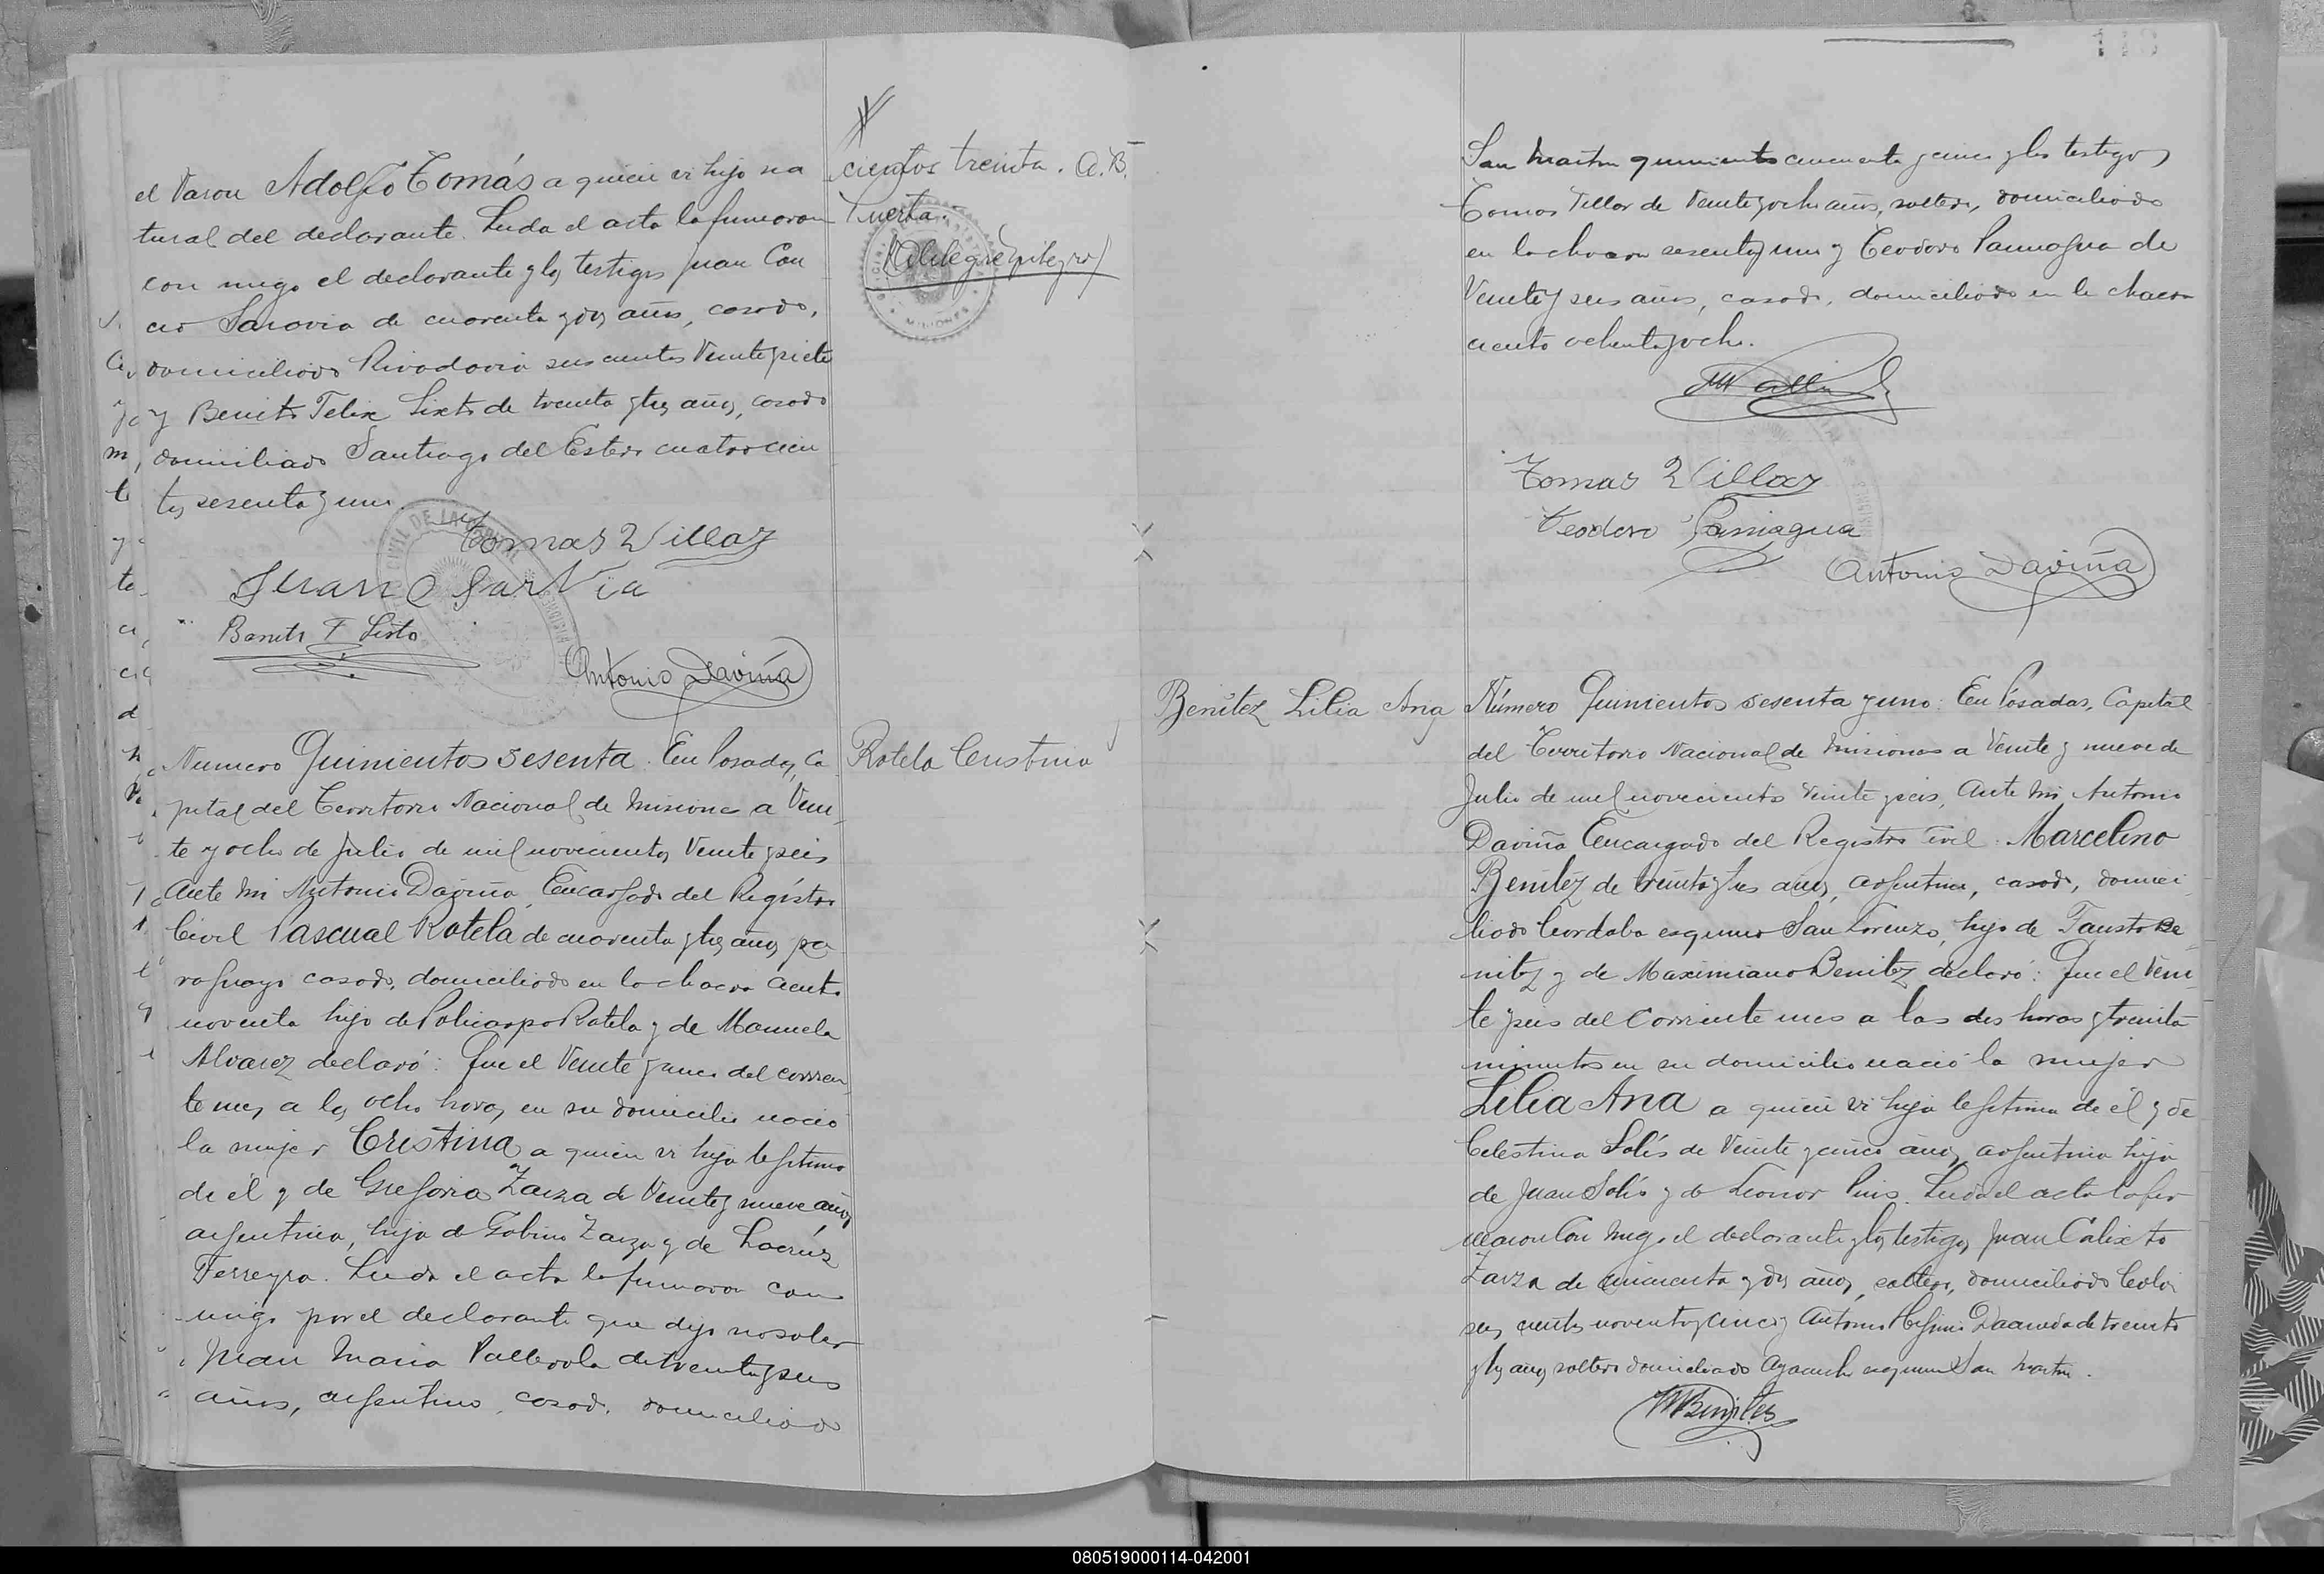 el Varon Adolfo Tomás a quien vi hijo na
tural del declarante. Leida el acta la firmaron
con migo el declarante y los testigos Juan Can
cio Saravia de cuarenta y dos años, casado,
domiciliado Rivadavia seiscientos Veinte y siete
y Benito Felix Sixto de treinta y tres años, casado
domiciliado Santiago del Estero cuatrocien
tos sesenta y uno.
Tomas Villar
Juan C Sarvia
Benito F Sisto
Antonio Daviña
cientos treinta. A. B.
Puerta.
Numero Quinientos sesenta. En Posadas, Ca
pital del Territorio Nacional de Misiones a Vein
te y ocho de Julio de mil novecientos Veinte y seis
Ante Mi Antonio Daviña, Encargado del Registro
Civil Pascual Rotela de cuarenta y tres años pa
raguayo casado, domiciliado en la chacra ciento
noventa hijo de Policarpo Rotela y de Manuela
Alvarez declaró: Que el Veinte y cinco del corrien
te mes a las ocho horas en su domicilio nació
la mujer Cristina a quien vi hija legitima
de él y de Gregoria Zarza de Veinte y nueve años
argentina, hija de Gabino Zarza y de Lacruz
Ferreyra. Leida el acta la firmaron con
migo por el declarante que dijo no saber
Juan Maria de treinta y seis
años, argentino, casado, domiciliado
Rotela Cristina
118
San Martin quinientos cincuenta y cinco y los testigos
Tomas Villar de Veinte y ocho años, soltero, domiciliado
en la chacra sesenta y uno y Teodoro Paniagua de
Veinte y seis años, casado, domiciliado en la chacra
ciento ochenta y ocho.
Tomas Villar
Teodoro Paniagua
Antonio Daviña
Benitez Lilia Ana
Número Quinientos sesenta y uno: En Posadas, Capital
del Territorio Nacional de Misiones a Veinte y nueve de
Julio de mil novecientos Veinte y seis, Ante Mi Antonio
Daviña Encargado del Registro Civil. Marcelino
Benitez de treinta y tres años, argentino, casado, domici
liado Cordoba esquina San Lorenzo, hijo de Fausto Be
nitez y de Maximiana Benitez declaró: Que el Vein
te y seis del corriente mes a las dos horas y treinta
minutos en su domicilio nació la mujer
Lilia Ana a quien vi hija legitima de él y de
Celestina Solís de Veinte y cinco años argentina hija
de Juan Solís y de Leonor Leida el acta la fir
maron con migo el declarante y los testigos Juan Calixto
Zarza de cincuenta y dos años, soltero, domiciliado Colon
seis cientos noventa y cinco y Antonio de treinta
y tres años soltero domiciliado Ayacucho esquina San Martin.
MBenitez
080519000114-042001